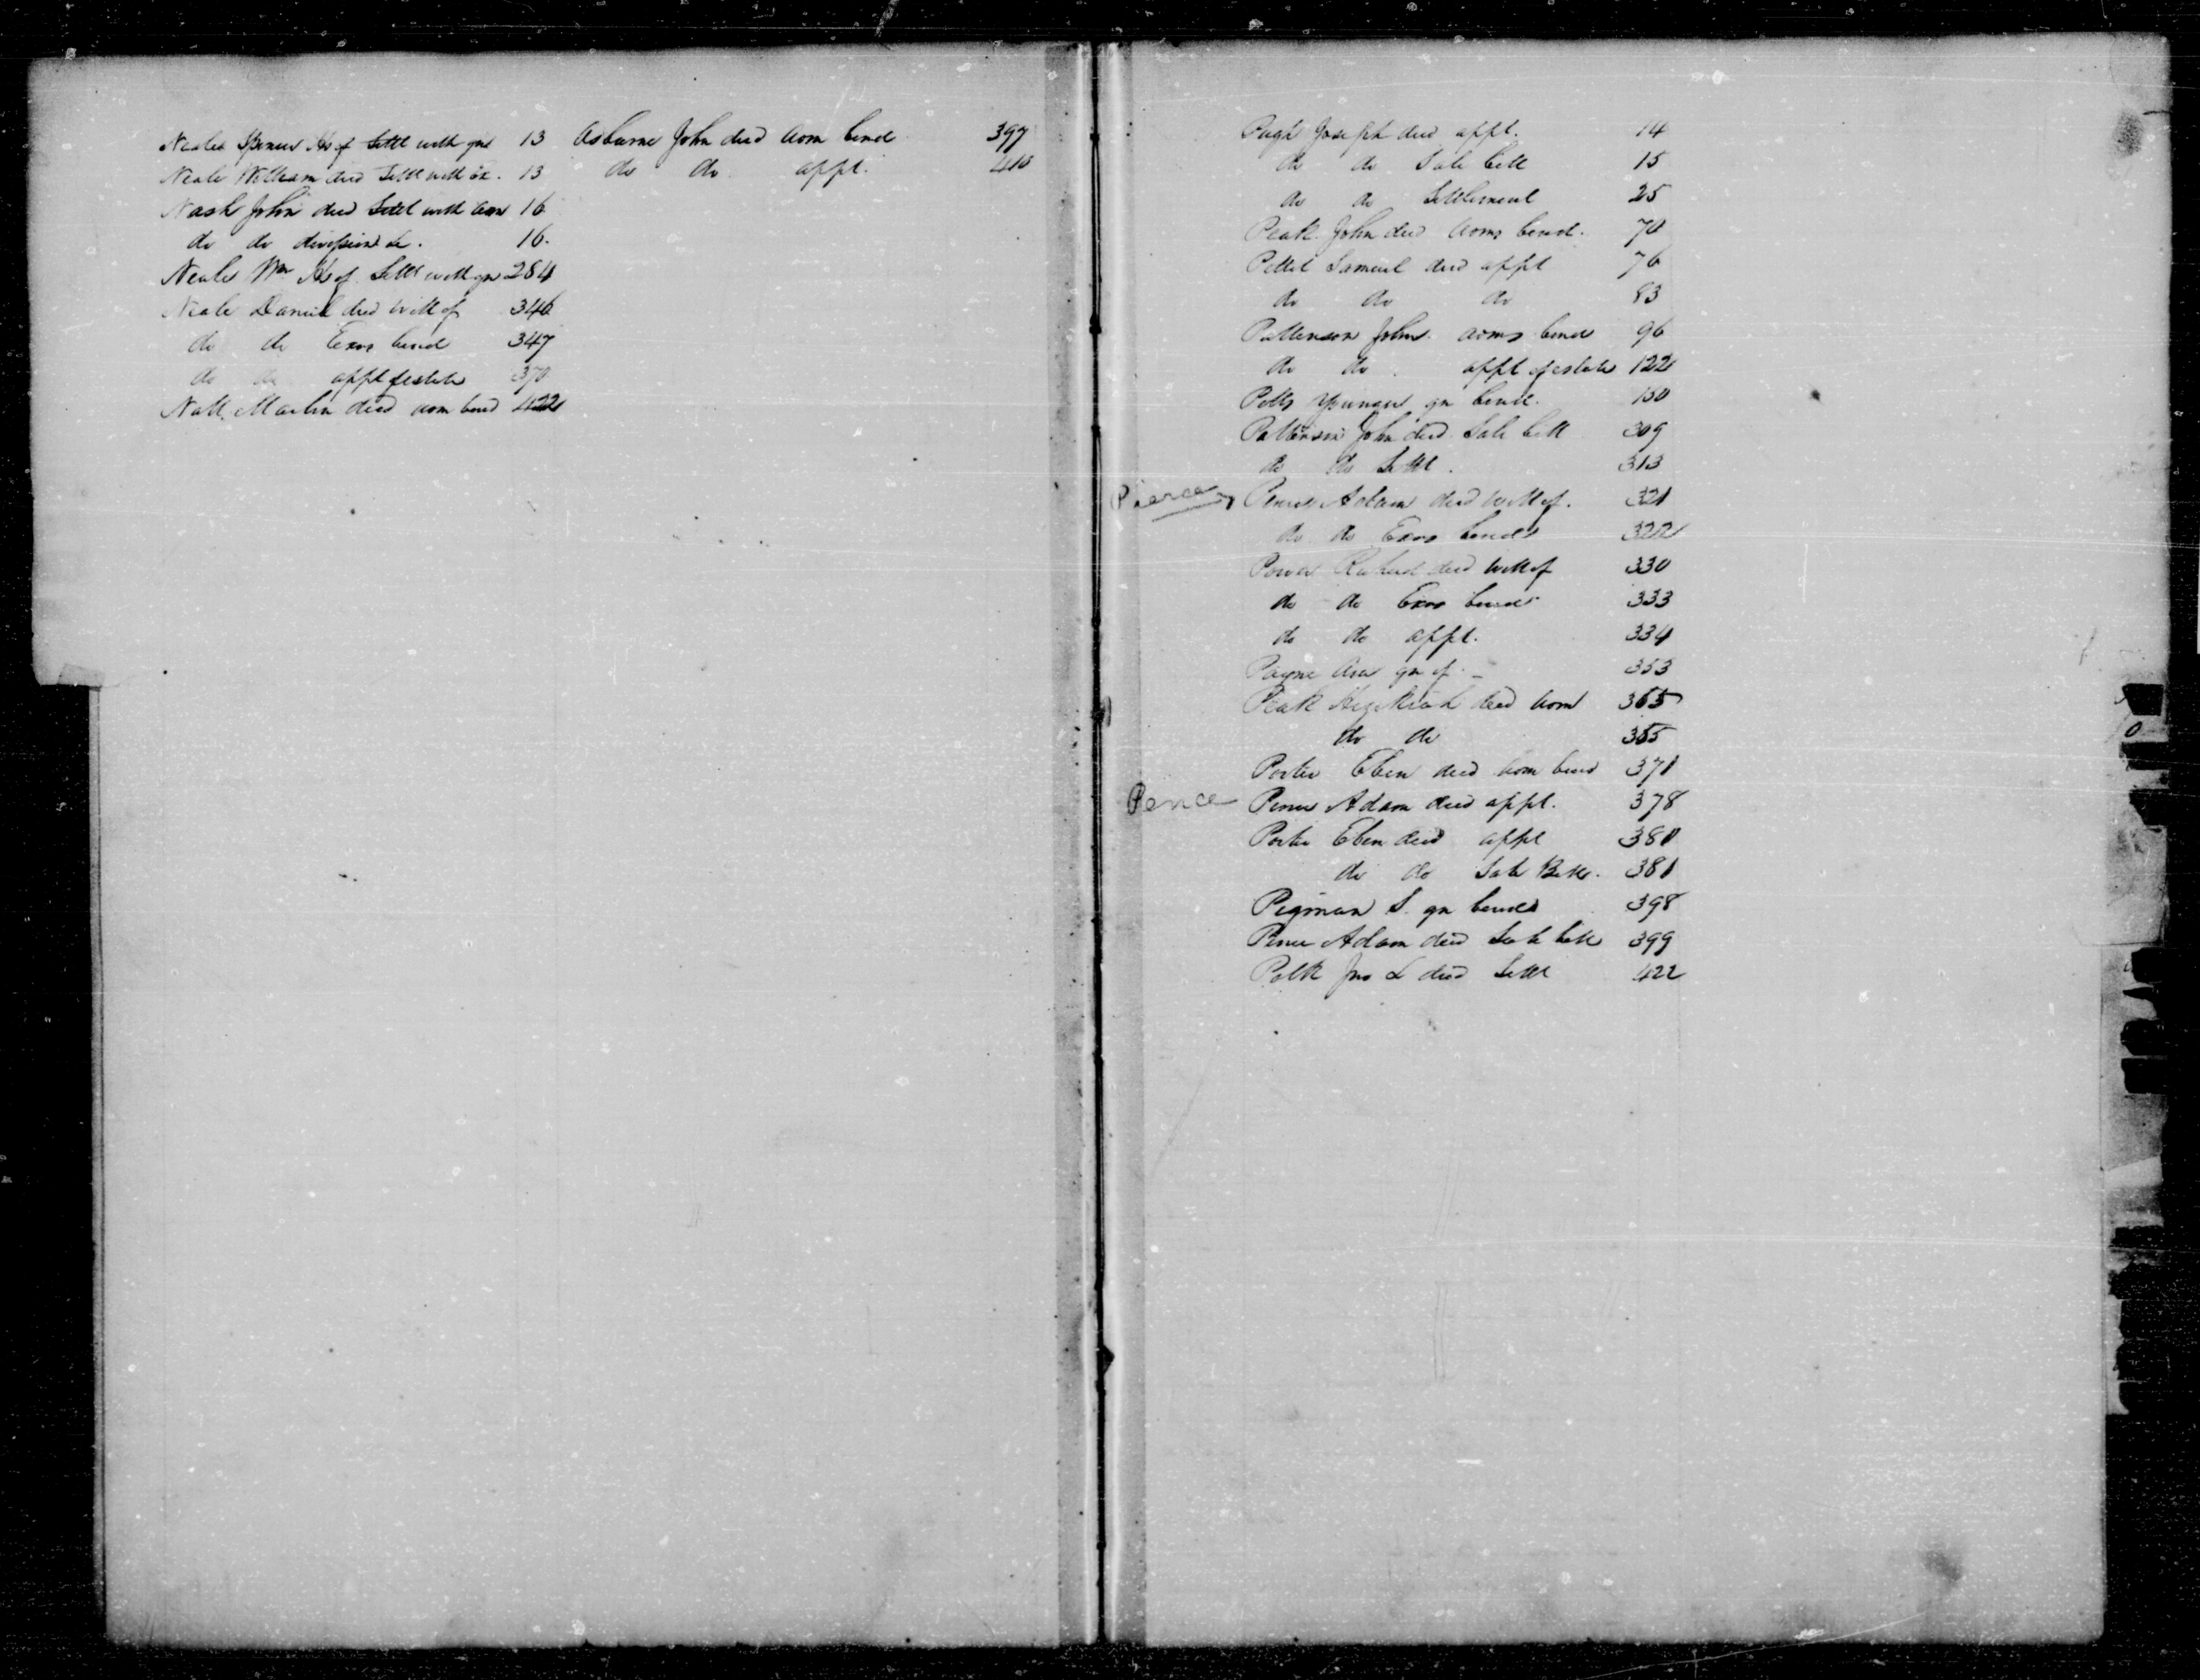 Neales Spencer Hs of Settl with gns 13
Neale William decd Settl with Ex. 13
Nash John decd Settl with adm 16
do do division &c. 16.
Neales Wm Hs of Settl with gn 284
Neale Daniel decd Will of 346
do do Exrs bond 347
do do applt of estate 370
Nall Martin decd adm bond 422
Osburne John decd adm bond 397
do do applt. 410
Pugh Joseph decd applt. 14
do do Sale bill 15
do do Settlement 25
Peak John decd adms bond. 70
Pettit Samuel decd applt 76
do do do 83
Patterson John. adms bond 96
do do applt of estate 122
Petty Younger gn bond. 150
Patterson John decd Sale bill 309
do do Settl. 313
Pierce Pence Adam decd Will of. 321
do do Exrs bonds 322
Power Richard decd Will of 330
do do Exrs bond 333
do do applt. 334
Payne Asa gn of 353
Peak Hezekiah decd adm 365
do do 365
Porter Eben decd adm bond 371
Pence Pence Adam decd applt. 378
Porter Eben decd applt 380
do do Sale Bill. 381
Pigman S. gn bonds 398
Pence Adam decd Sale bill 399
Polk Jno L decd Settl 422